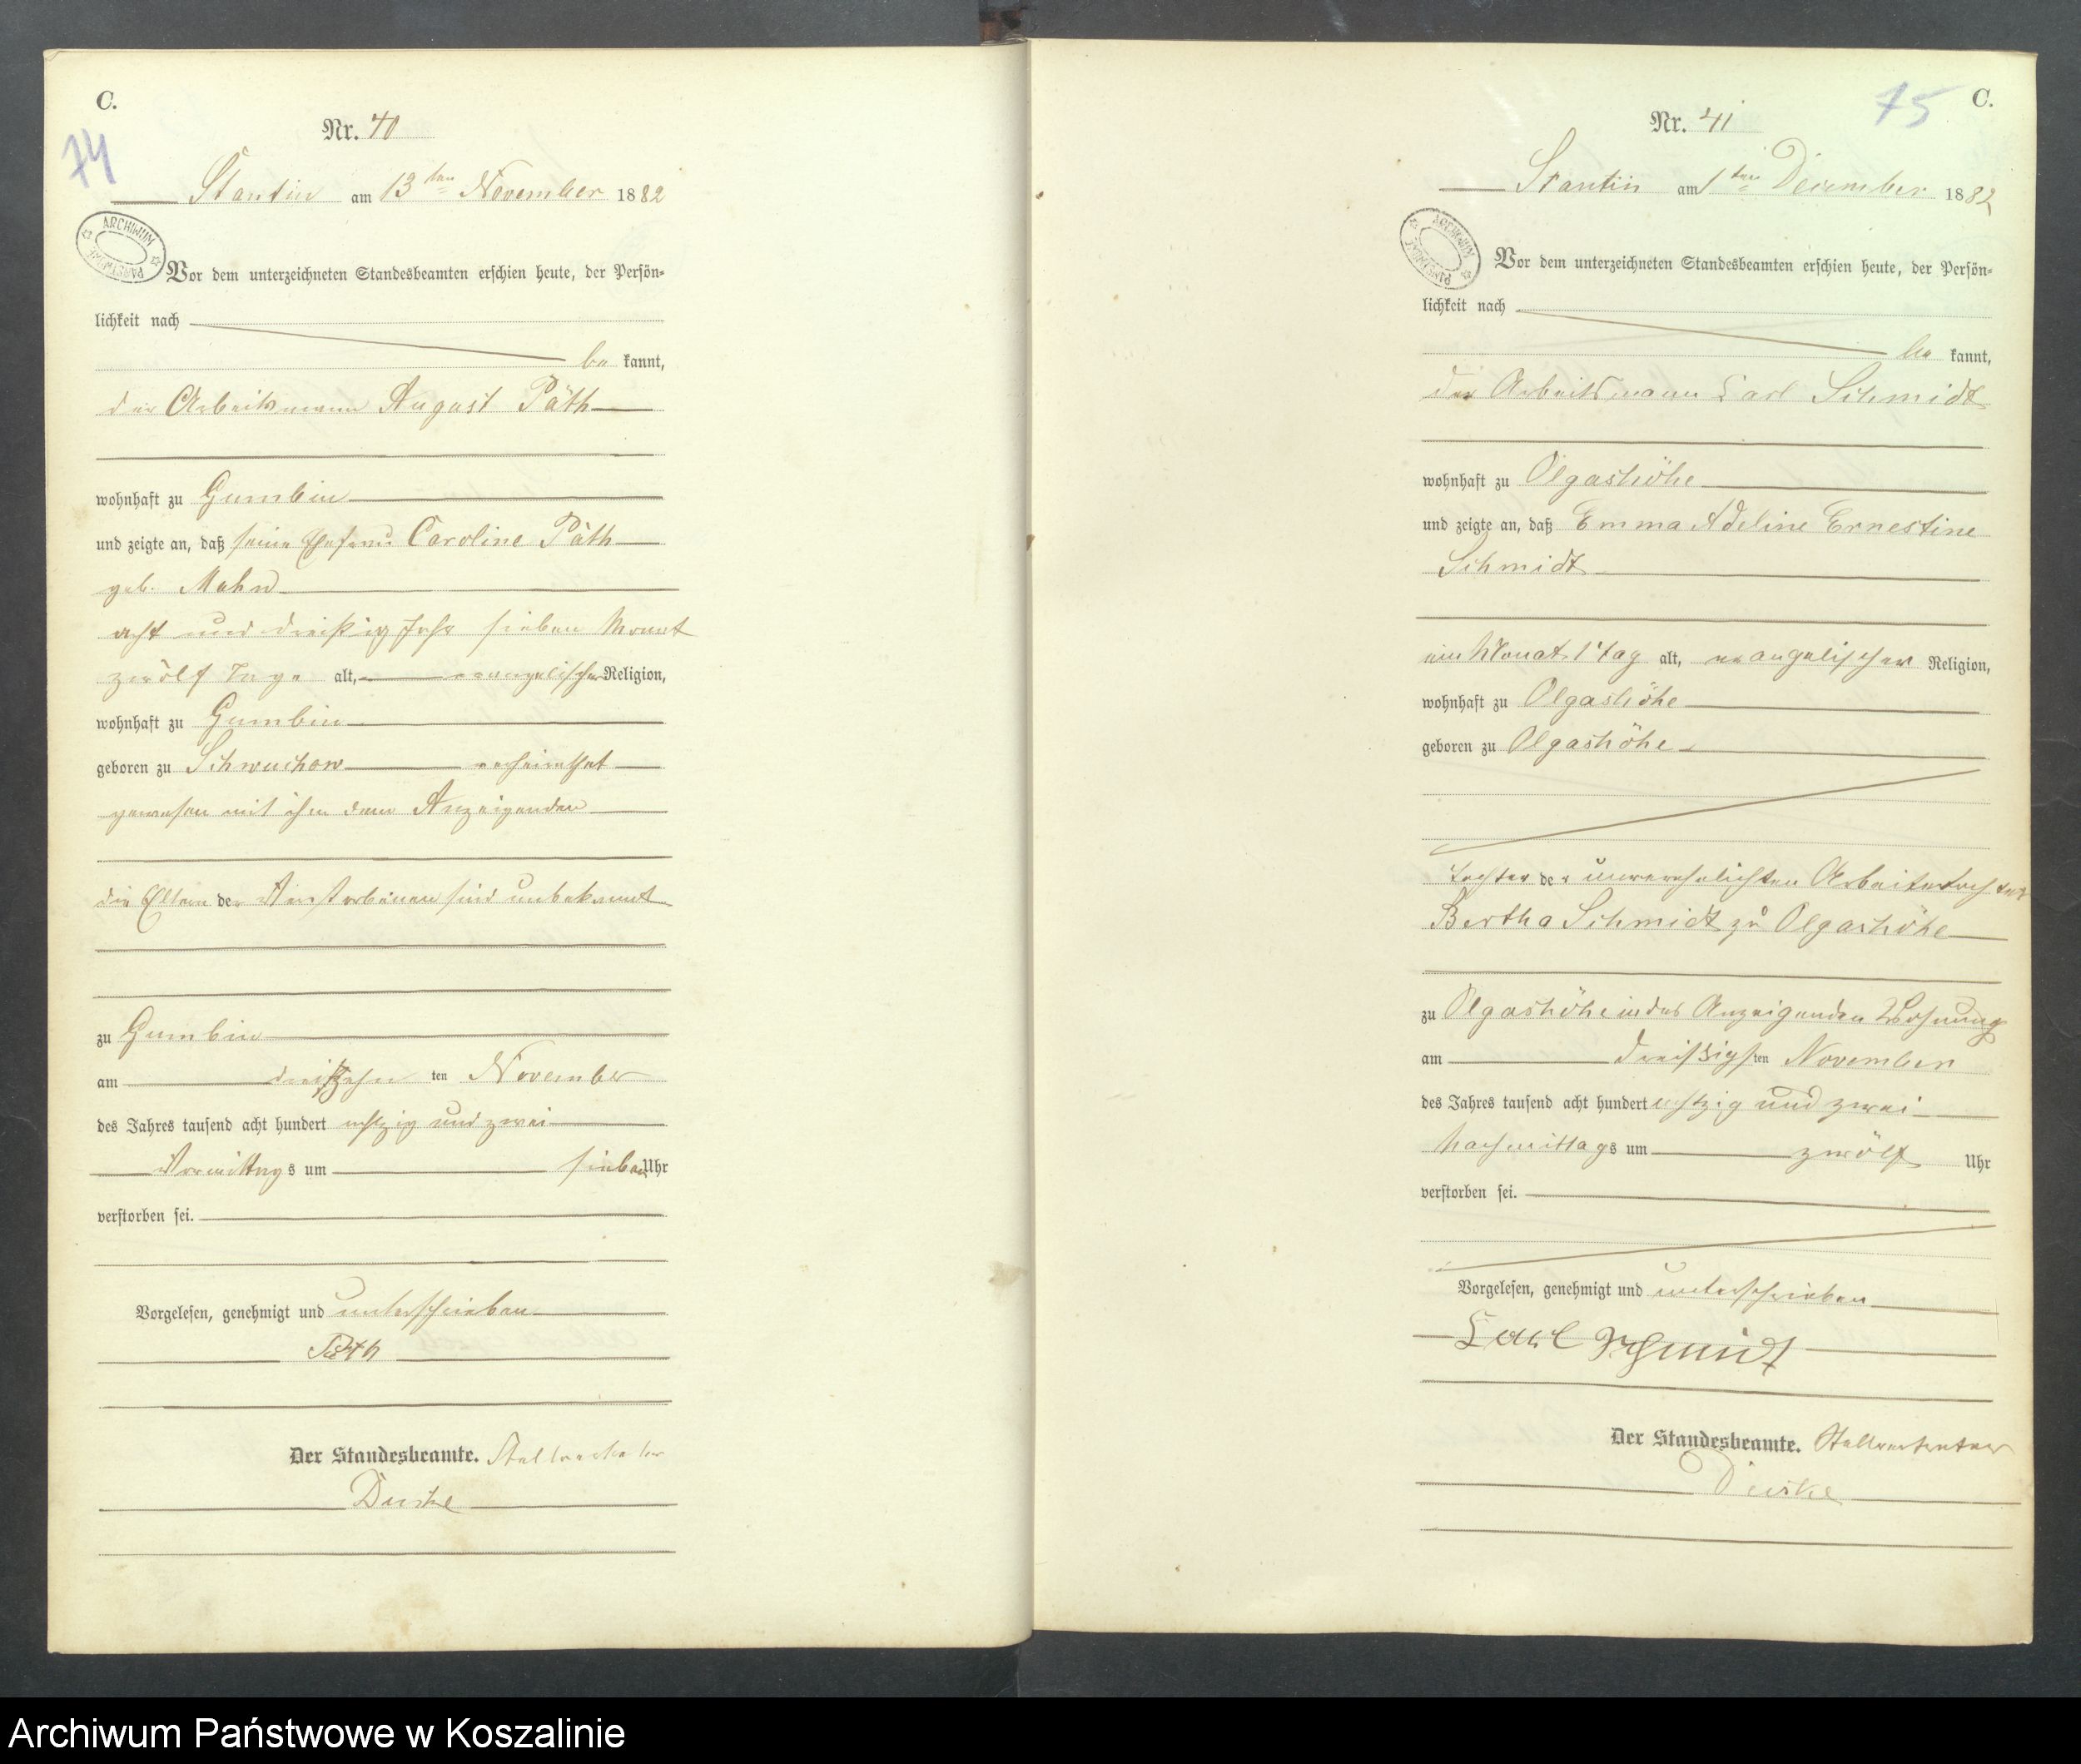 C.
74
Nr. 40
Stantin am 13ten November 1882
ARCHIWUM PAŃSTWOWE
Vor dem unterzeichneten Standesbeamten erschien heute, der Persön-
lichkeit nach
be kannt,
der Arbeitsmann August Päth
wohnhaft zu Gumbin
und zeigte an, daß seine Ehefrau Caroline Päth
geb. Mahn
acht und dreißig Jahr sieben Monat
zwölf Tage alt, evangelischer Religion,
wohnhaft zu Gumbin
geboren zu Schwuchow verheirathet
gewesen mit ihm dem Anzeigenden
die Eltern der Verstorbenen sind unbekannt
zu Gumbin
am dreizehn ten November
des Jahres tausend acht hundert achtzig und zwei
Vormittags um sieben Uhr
verstorben sei.
Vorgelesen, genehmigt und unterschrieben
Päth
Der Standesbeamte. Stellvertreter
75
C.
Nr. 41
Stantin am 1ten Dezember 1882
ARCHIWUM PAŃSTWOWE
Vor dem unterzeichneten Standesbeamten erschien heute, der Persön-
lichkeit nach
be kannt,
der Arbeitsmann Carl Schmidt
wohnhaft zu Olgashöhe
und zeigte an, daß Emma Adeline Ernestine
Schmidt
ein Monat 1 Tag alt, evangelischer Religion,
wohnhaft zu Olgashöhe
geboren zu Olgashöhe
Tochter der unverehelichten Arbeitertochter
Bertha Schmidt zu Olgashöhe
zu Olgashöhe in des Anzeigenden Wohnung
am dreißigsten November
des Jahres tausend acht hundert achtzig und zwei
Nachmittags um zwölf Uhr
verstorben sei.
Vorgelesen, genehmigt und unterschrieben
Carl Schmidt
Der Standesbeamte. Stellvertreter
Archiwum Państwowe w Koszalinie